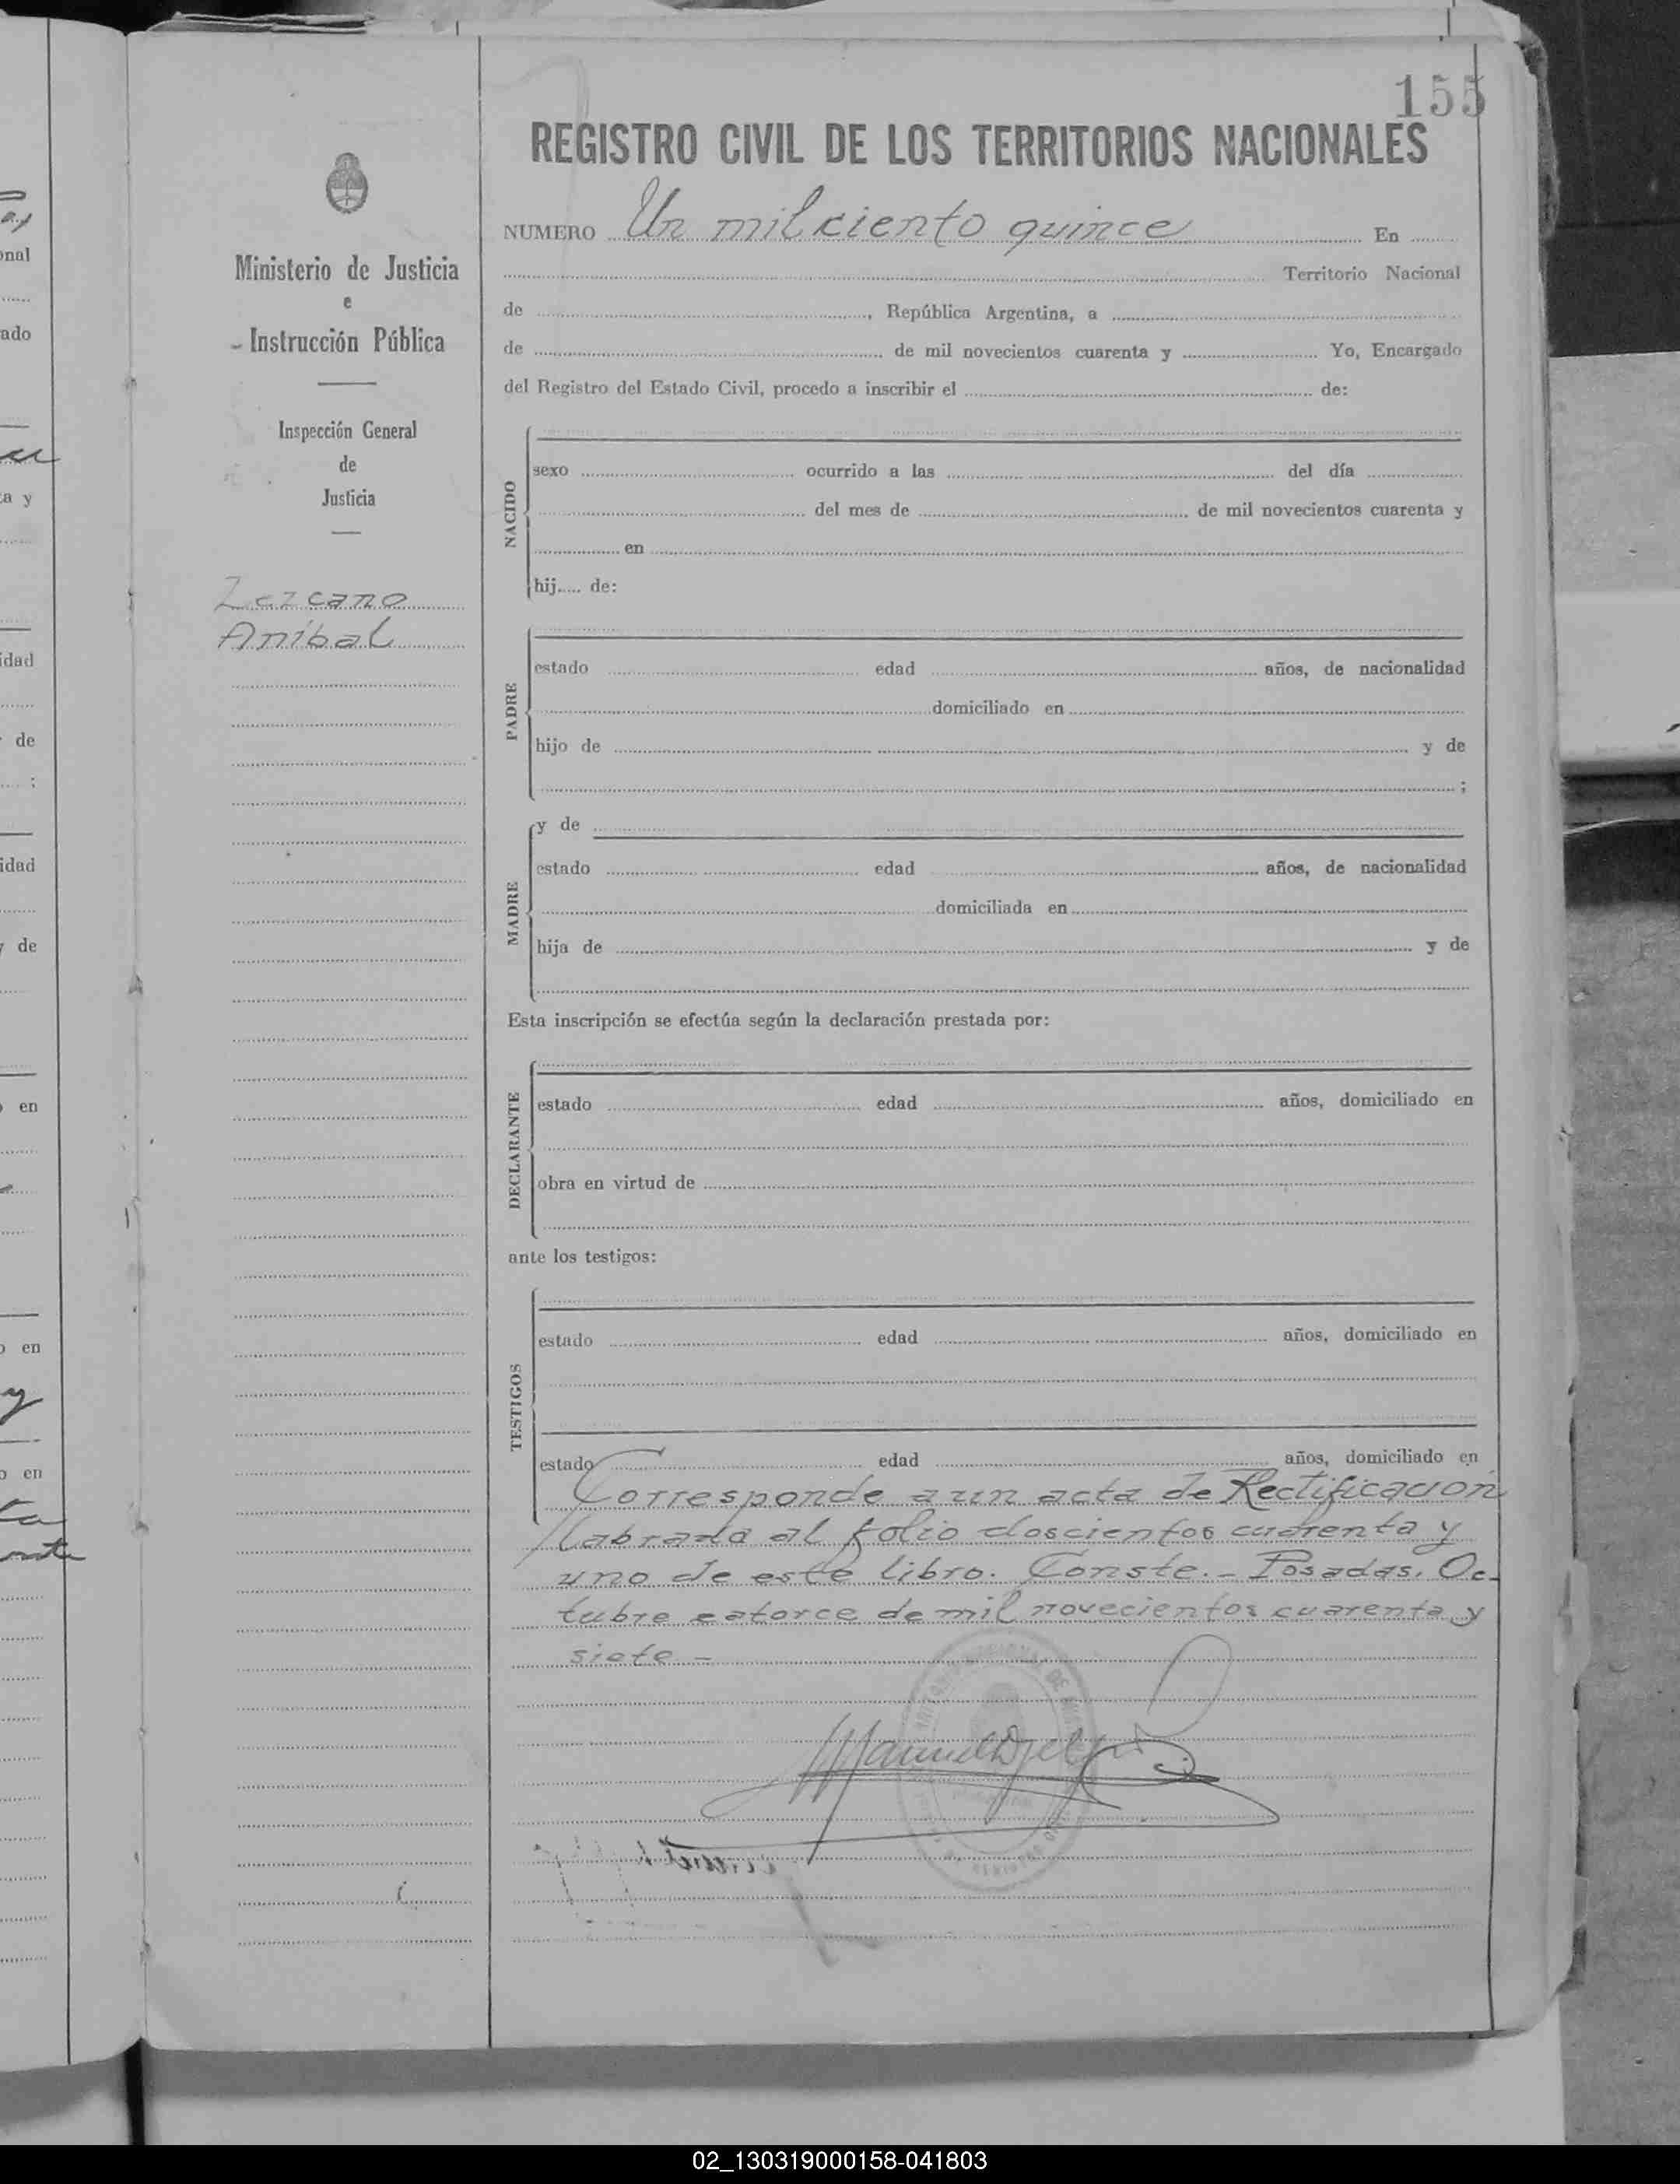 155
REGISTRO CIVIL DE LOS TERRITORIOS NACIONALES
NUMERO Un mil ciento quince En
Territorio Nacional
de , República Argentina, a
de de mil novecientos cuarenta y Yo, Encargado
del Registro del Estado Civil, procedo a inscribir el de:
Ministerio de Justicia
e
Instrucción Pública
Inspección General
de
Justicia
Lezcano
Aníbal
NACIDO
sexo ocurrido a las del día
del mes de de mil novecientos cuarenta y
en
hij..... de:
PADRE
estado edad años, de nacionalidad
domiciliado en
hijo de y de
;
MADRE
y de
estado edad años, de nacionalidad
domiciliada en
hija de y de
Esta inscripción se efectúa según la declaración prestada por:
DECLARANTE
estado edad años, domiciliado en
obra en virtud de
ante los testigos:
TESTIGOS
estado edad años, domiciliado en
estado edad años, domiciliado en
Corresponde a un acta de Rectificación
labrada al folio doscientos cuarenta y
uno de este libro. Conste.- Posadas, Oc-
tubre catorce de mil novecientos cuarenta y
siete -
02_130319000158-041803